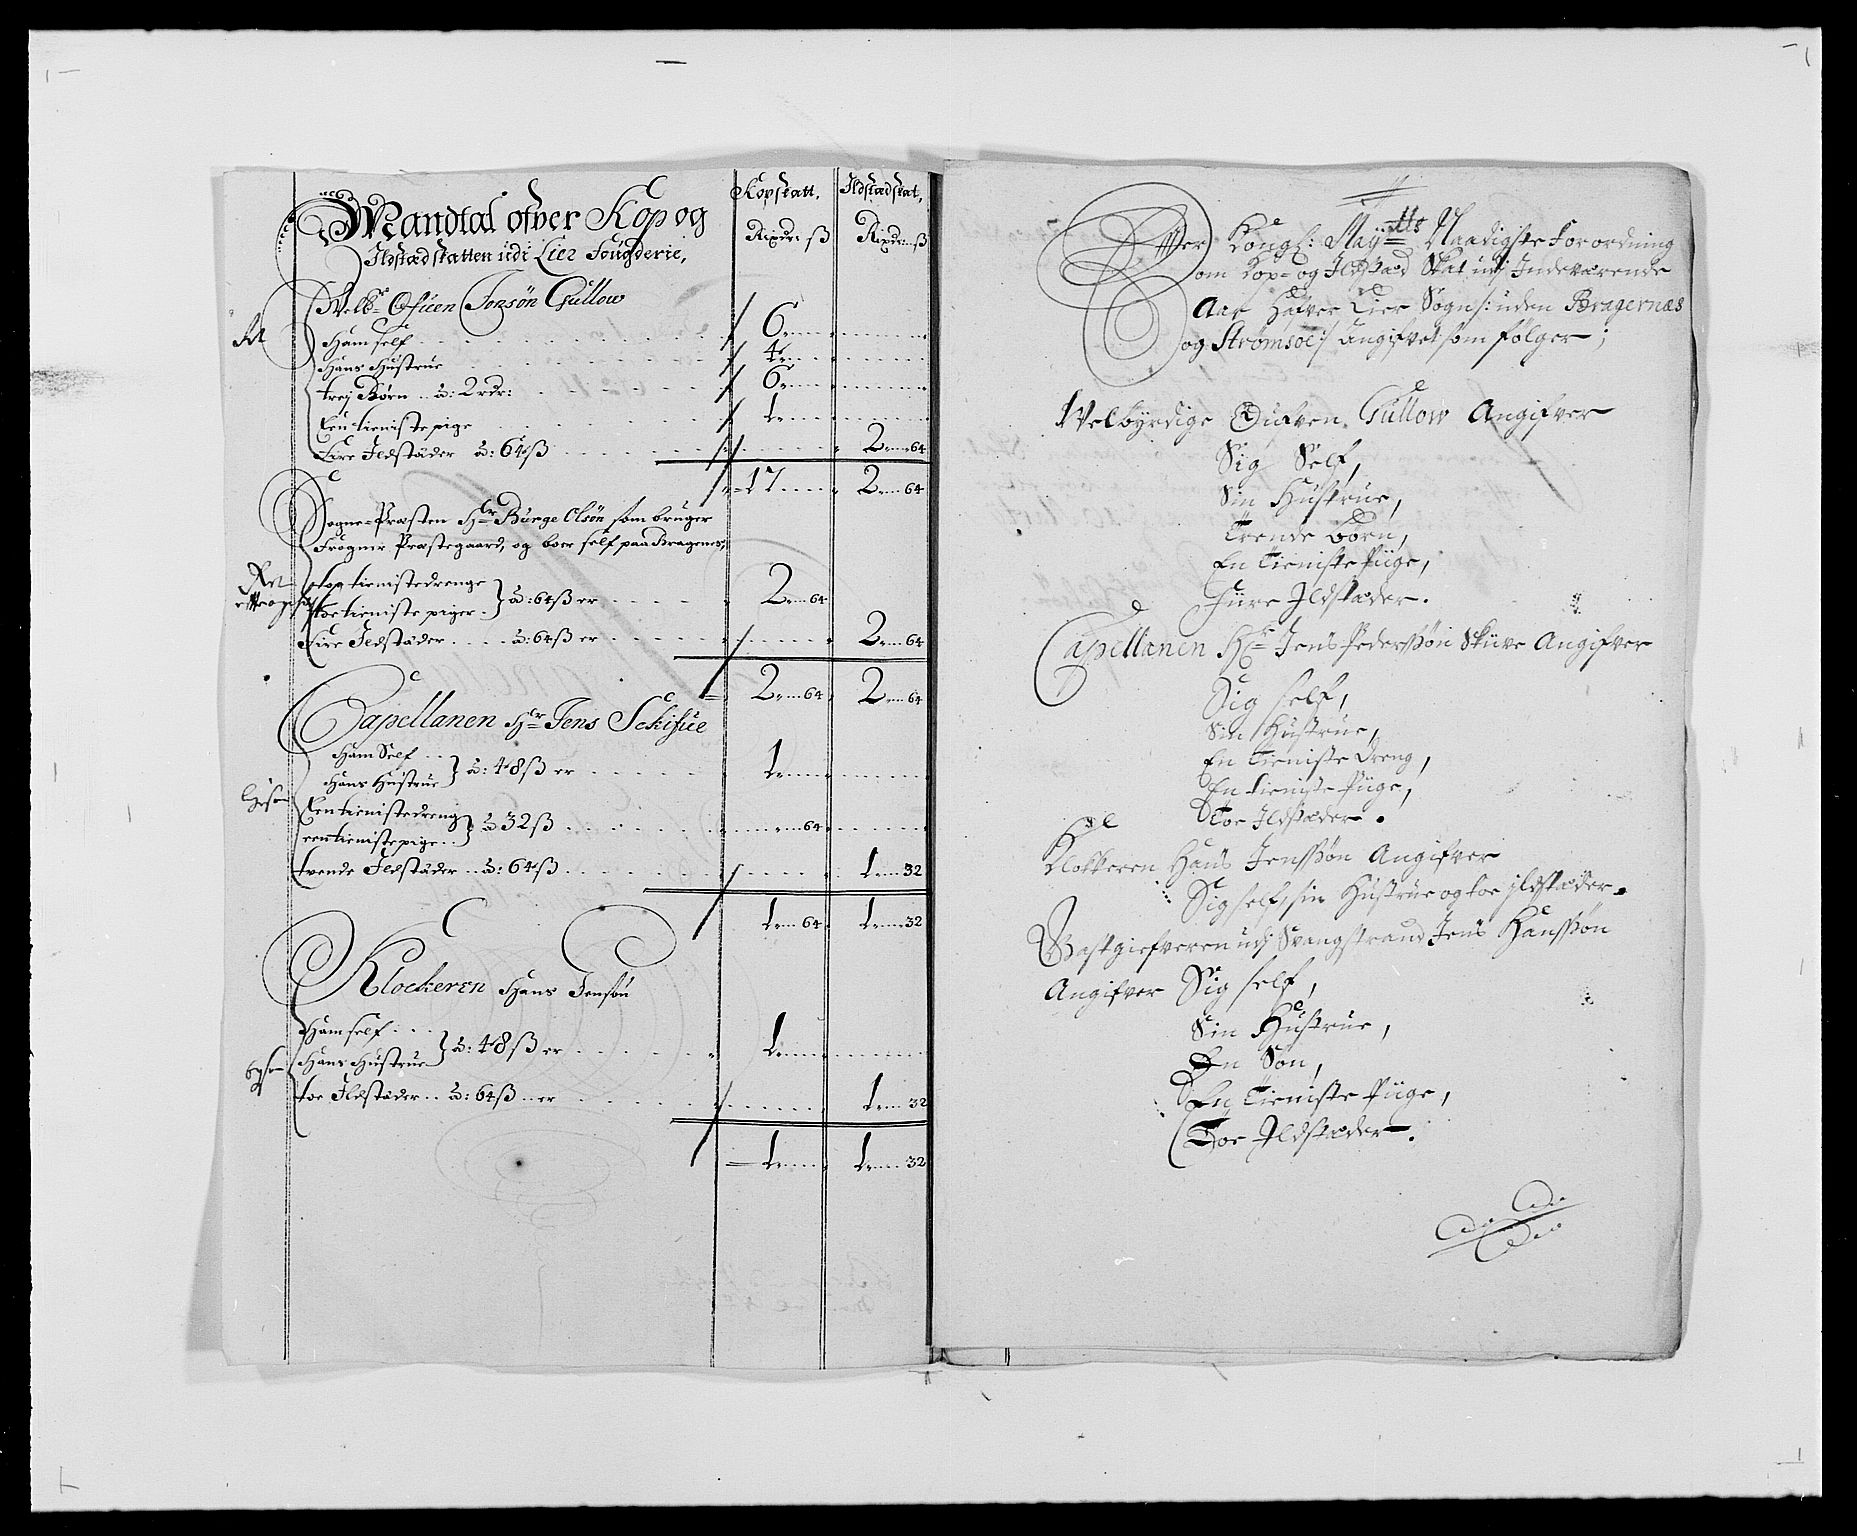 Mandtal ofver Kop og
Ildstædskatten udi Lier Fougderie,
Kopskatt. Ildstædskat,
Rixdr: ß Rixdr: ß
Velb: Ofuen Jonsøn Gullow
Ham self 6
Hans Hustrue 4
trej Børn à: 2 rdr: 6
Een tieniste pige 1
Fire Ildstæder à: 64 ß 2 64
17 2 64
Sogne-Præsten Hr Børge Olsøn som bruger
Frogner Præstegaard, og boer self paa Bragenes,
tieniste drenge
toe tieniste piger à: 64 ß er 2 64
Fire Ildstæder à: 64 ß er 2 64
2 64 2 64
Capellanen Hr Jens Schifue
Ham Self
Hans Hustrue à: 48 ß er 1
Een tieniste dreng
een tieniste pige à 32 ß 64
tvende Ildstæder à: 64 ß 1 32
1 64 1 32
Klockeren Hans Jensøn
Ham self
Hans Hustrue à: 48 ß er 1
toe Ildstæder à: 64 ß er 1 32
1 1 32
Efter Kongl: Maytts Naadigste Forordning
om Kop- og Ildstæd Skat udj Indeværende
Aar Hafver Lier Sogn /: uden Bragernæs
og Strømsoe :/ Angifvet som følger;
Welbyrdige Oufven Gullow Angifver
Sig Self,
Sin Hustrue,
Trende Børn,
En Tieniste Piige,
Fiire Ildstæder.
Capellanen Hr Jens Pederssøn Skiive Angifver
Sig self,
Sin Hustrue,
En Tieniste Dreng,
En tieniste Piige,
Toe Ildstæder.
Klokkeren Hans Jenssøn Angifver
Sig self, sin Hustrue og toe ildstæder.
Gastgiefveren udj Svangstrand Jens Hanssøn
Angifver Sig self,
Sin Hustrue,
En Søn,
En Tieniste Piige,
Toe Ildstæder.